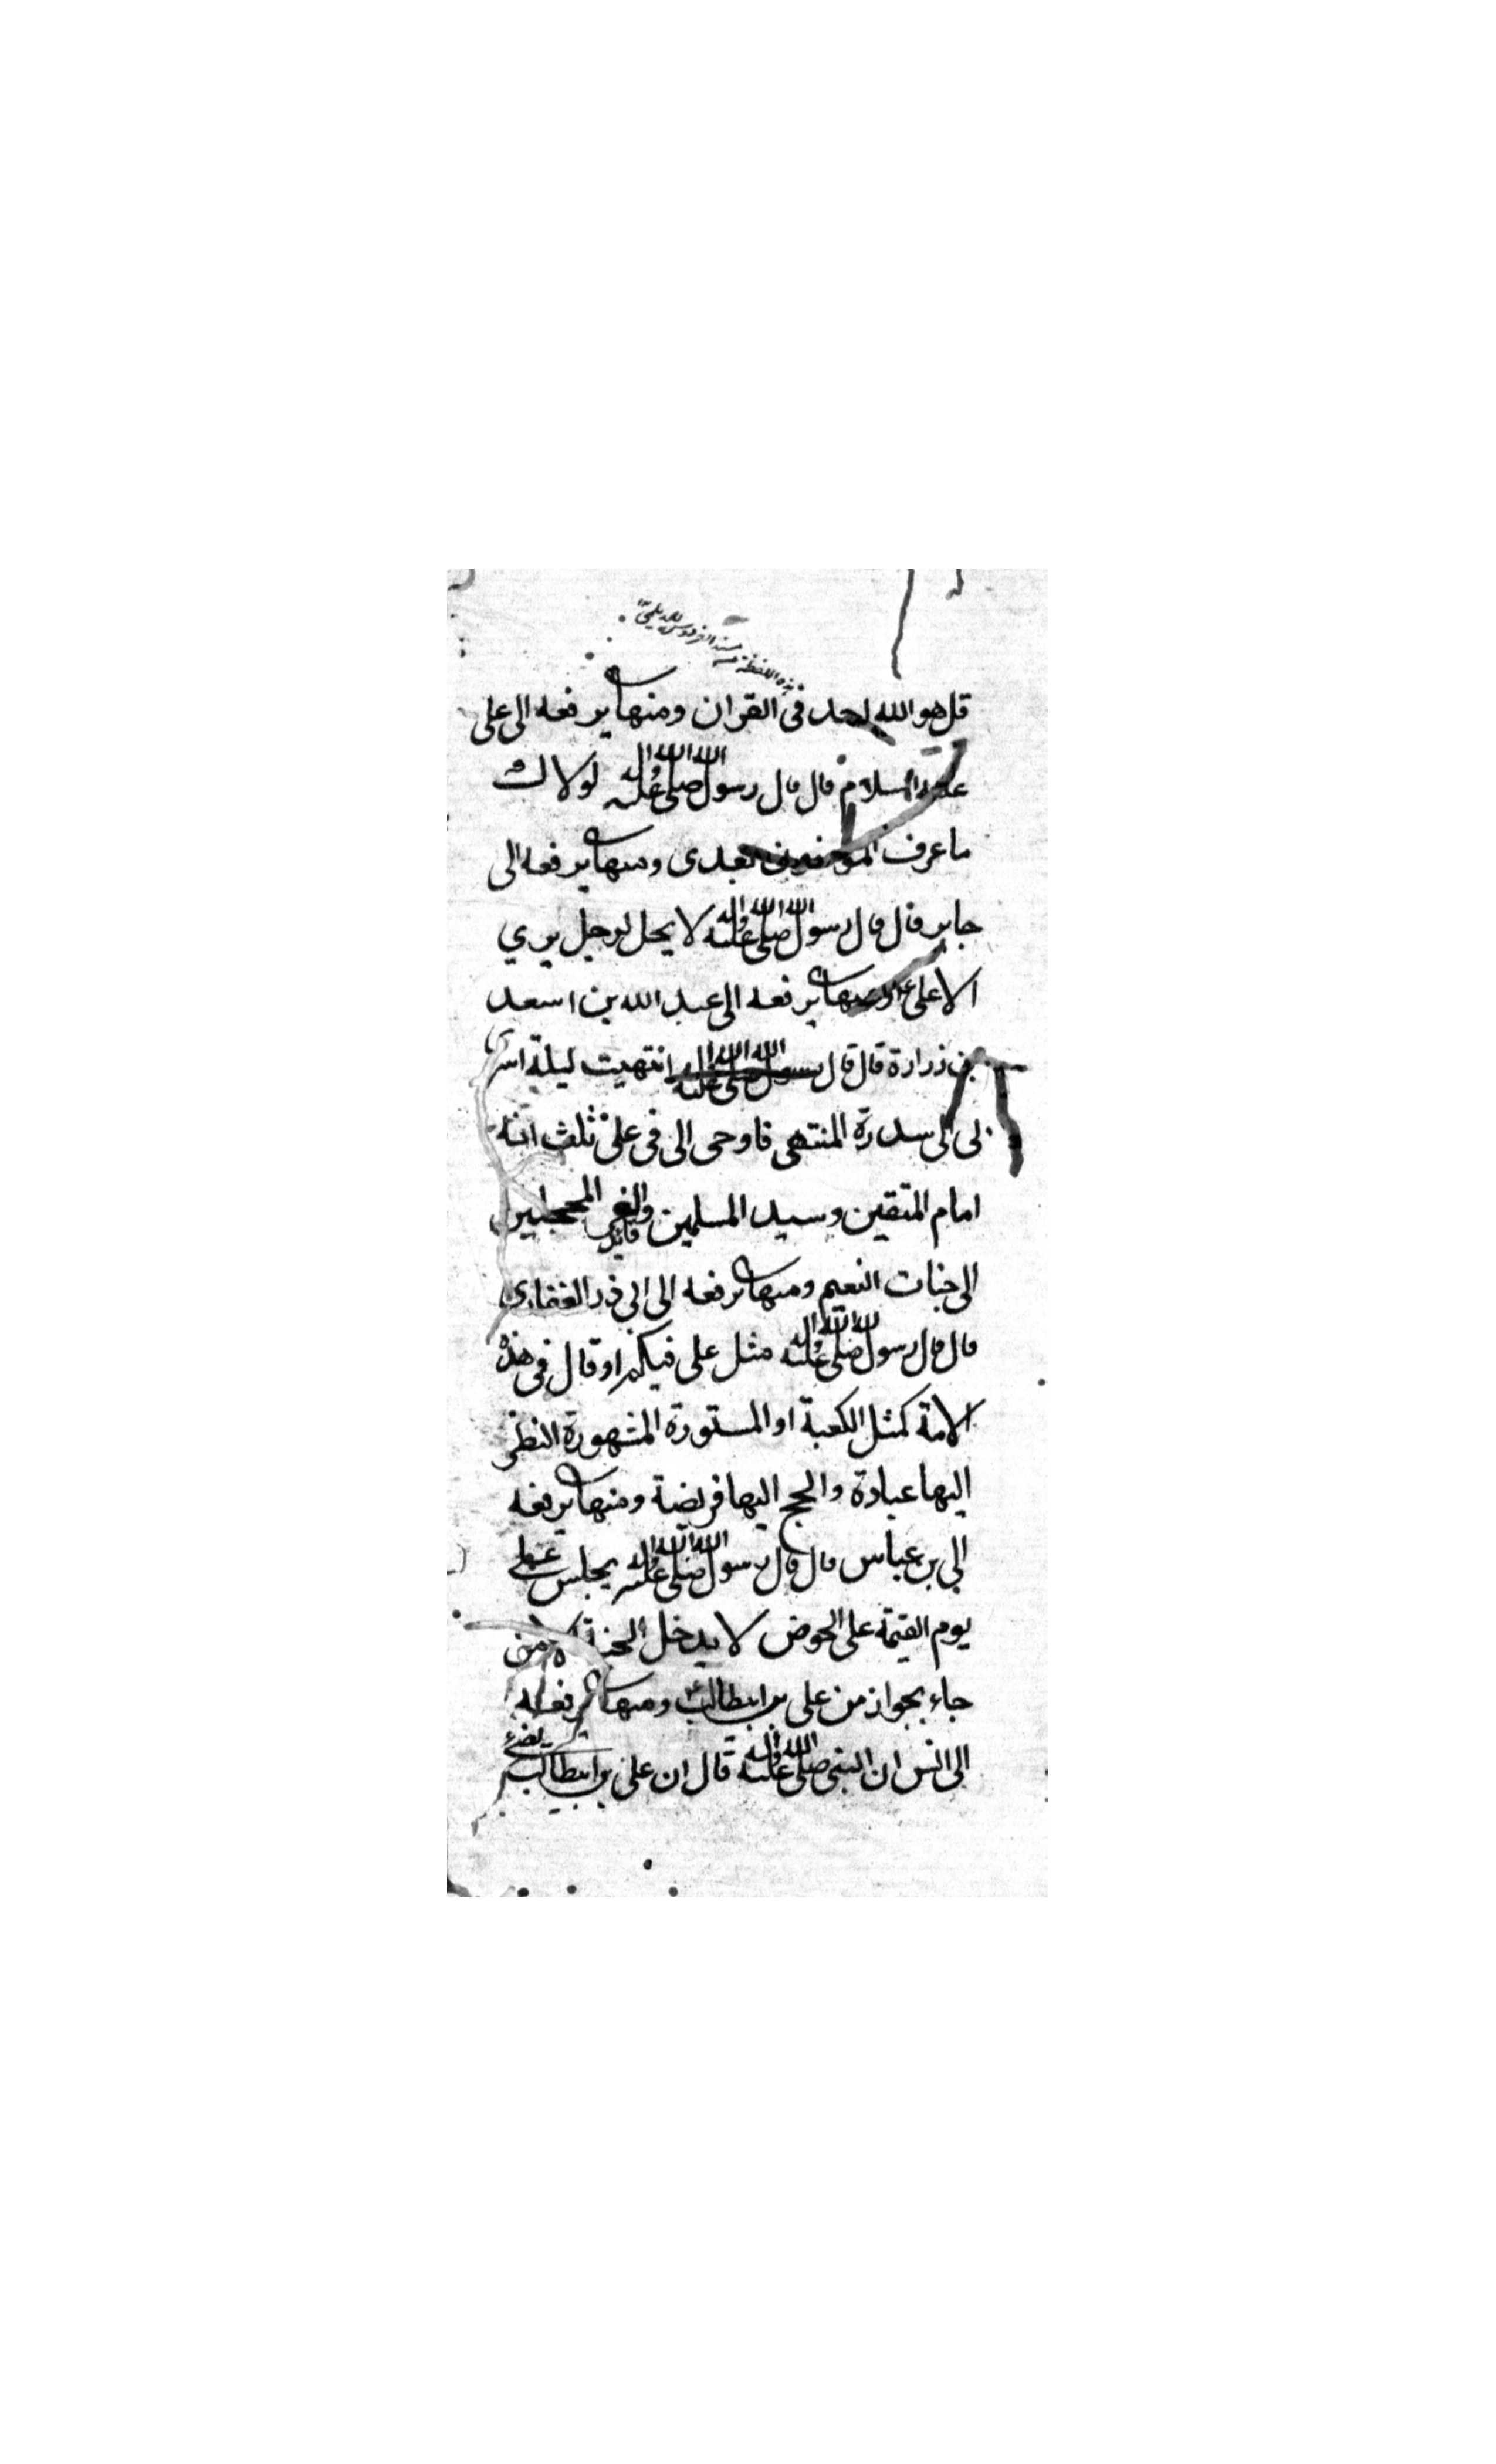 هذه اللفظة من مسند الفردوس للديلمي
قل هو الله احد فى القران ومنها يرفعه الى على
عليه السلام قال قال رسول الله صلى الله عليه واله لولاك
ما عرف المؤمنون بعدى ومنها يرفعه الى
جابر قال قال رسول الله صلى الله عليه واله لا يحل لرجل يري
الا على ع ومنها يرفعه الى عبد الله بن اسعد
بن زرارة قال قال رسول الله صلى الله عليه واله انتهيت ليلة اسر
لى الى سدرة المنتهى فاوحى الى فى على ثلث انه
امام المتقين وسيد المسلمين وقائد الغر المحجلين
الى جنات النعيم ومنها يرفعه الى ابى ذر الغفارى
قال قال رسول الله صلى الله عليه واله مثل على فيكم او قال فى هذه
الامة كمثل الكعبة او المستورة المشهورة النظر
اليها عبادة والحج اليها فريضة ومنها يرفعه
الى بن عباس قال قال رسول الله صلى الله عليه واله يجلس على ع
يوم القيمة على الحوض لا يدخل الجنة الا من
جاء بجواز من على بن ابيطالب ع ومنها يرفعه
الى انس ان النبى صلى الله عليه واله قال ان على بن ابيطالب يضئ